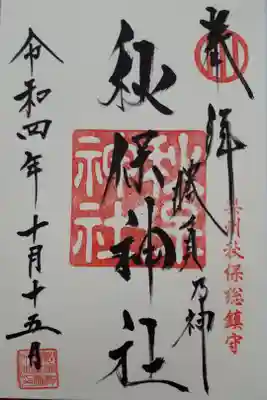 奉拝
勝負乃神
奥州秋保総鎮守
秋保神社
秋保神社
令和四年十月十五日